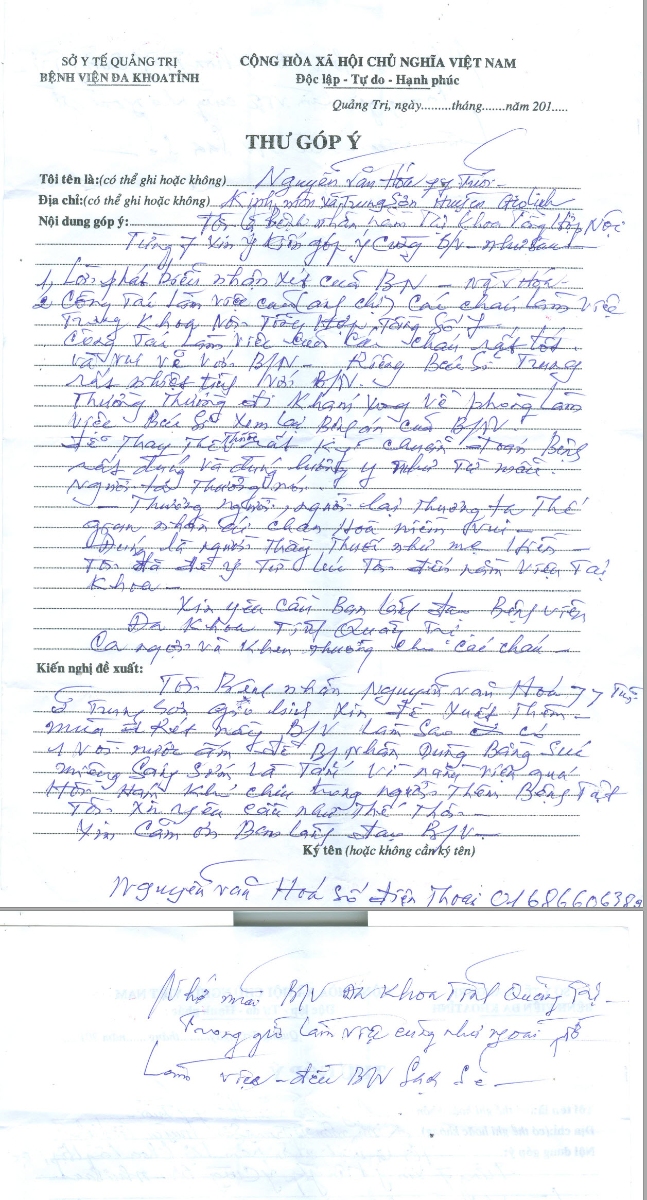 SỞ Y TẾ QUẢNG TRỊ
BỆNH VIỆN ĐA KHOA TỈNH
CỘNG HÒA XÃ HỘI CHỦ NGHĨA VIỆT NAM
Độc lập - Tự do - Hạnh phúc
Quảng Trị, ngày.........tháng.......năm 201.....
THƯ GÓP Ý
Tôi tên là:(có thể ghi hoặc không) Nguyễn Văn Hóa 77 Tuổi
Địa chỉ:(có thể ghi hoặc không) Kinh môn xã Trung Sơn Huyện Gio linh
Nội dung góp ý: Tôi là bệnh nhân nằm Tại Khoa Nội
Tầng 7 Xin ý kiến góp ý cùng B/V - như sau
1, Lời phát biểu nhận xét của BN - Ng V Hóa
2 Công Tác làm việc của (anh chị) Các cháu làm việc
Trong Khoa Nội Tổng Hợp Tầng Số 7
Công Tác làm việc của Các cháu rất tốt
và vui vẻ với B/N - Riêng Bác Sĩ Trung
rất nhiệt tình với B/N.
Thường Thường đi Khám xong về phòng làm
việc Bác Sĩ xem lại Bệnh án của B/N
để Thay Thế Thuốc rất kỹ chuẩn đoán Bệnh
rất đúng và đúng lương y như Từ mẫu.
Người ta Thường nói
- Thương người, người lại Thương ta Thế
gian nhân ái chan Hoà niềm vui -
Đúng là người Thầy Thuốc như mẹ Hiền -
Tôi đã để ý Từ lúc Tôi đến nằm viện Tại
Khoa -
Xin yêu cầu Ban lãnh đạo Bệnh viện
Đa Khoa Tỉnh Quảng Trị
Ca ngợi và Khen thưởng cho các cháu -
Kiến nghị đề xuất:
Tôi Bệnh nhân Nguyễn Văn Hoá 77 Tuổi
ở Trung Sơn gio linh Xin đề xuất Thêm -
mùa rét này B/V làm Sao có
1 vòi nước ấm để B/Nhân Dùng Đánh
miệng Sáng Sớm và Tắm vì nằm viện quá
Hôi Hám Khó chịu trong người Thêm Bệnh Tật
Tôi Xin yêu cầu như Thế Thôi -
Xin Cảm ơn Ban lãnh đạo B/V -
Ký tên (hoặc không cần ký tên)
Nguyễn Văn Hoá Số điện Thoại 01686606389
Nhớ mãi B/V Đa Khoa Tỉnh Quảng Trị -
Trong giờ làm việc cũng như ngoài giờ
Làm việc - đều BV Sạch Sẽ -